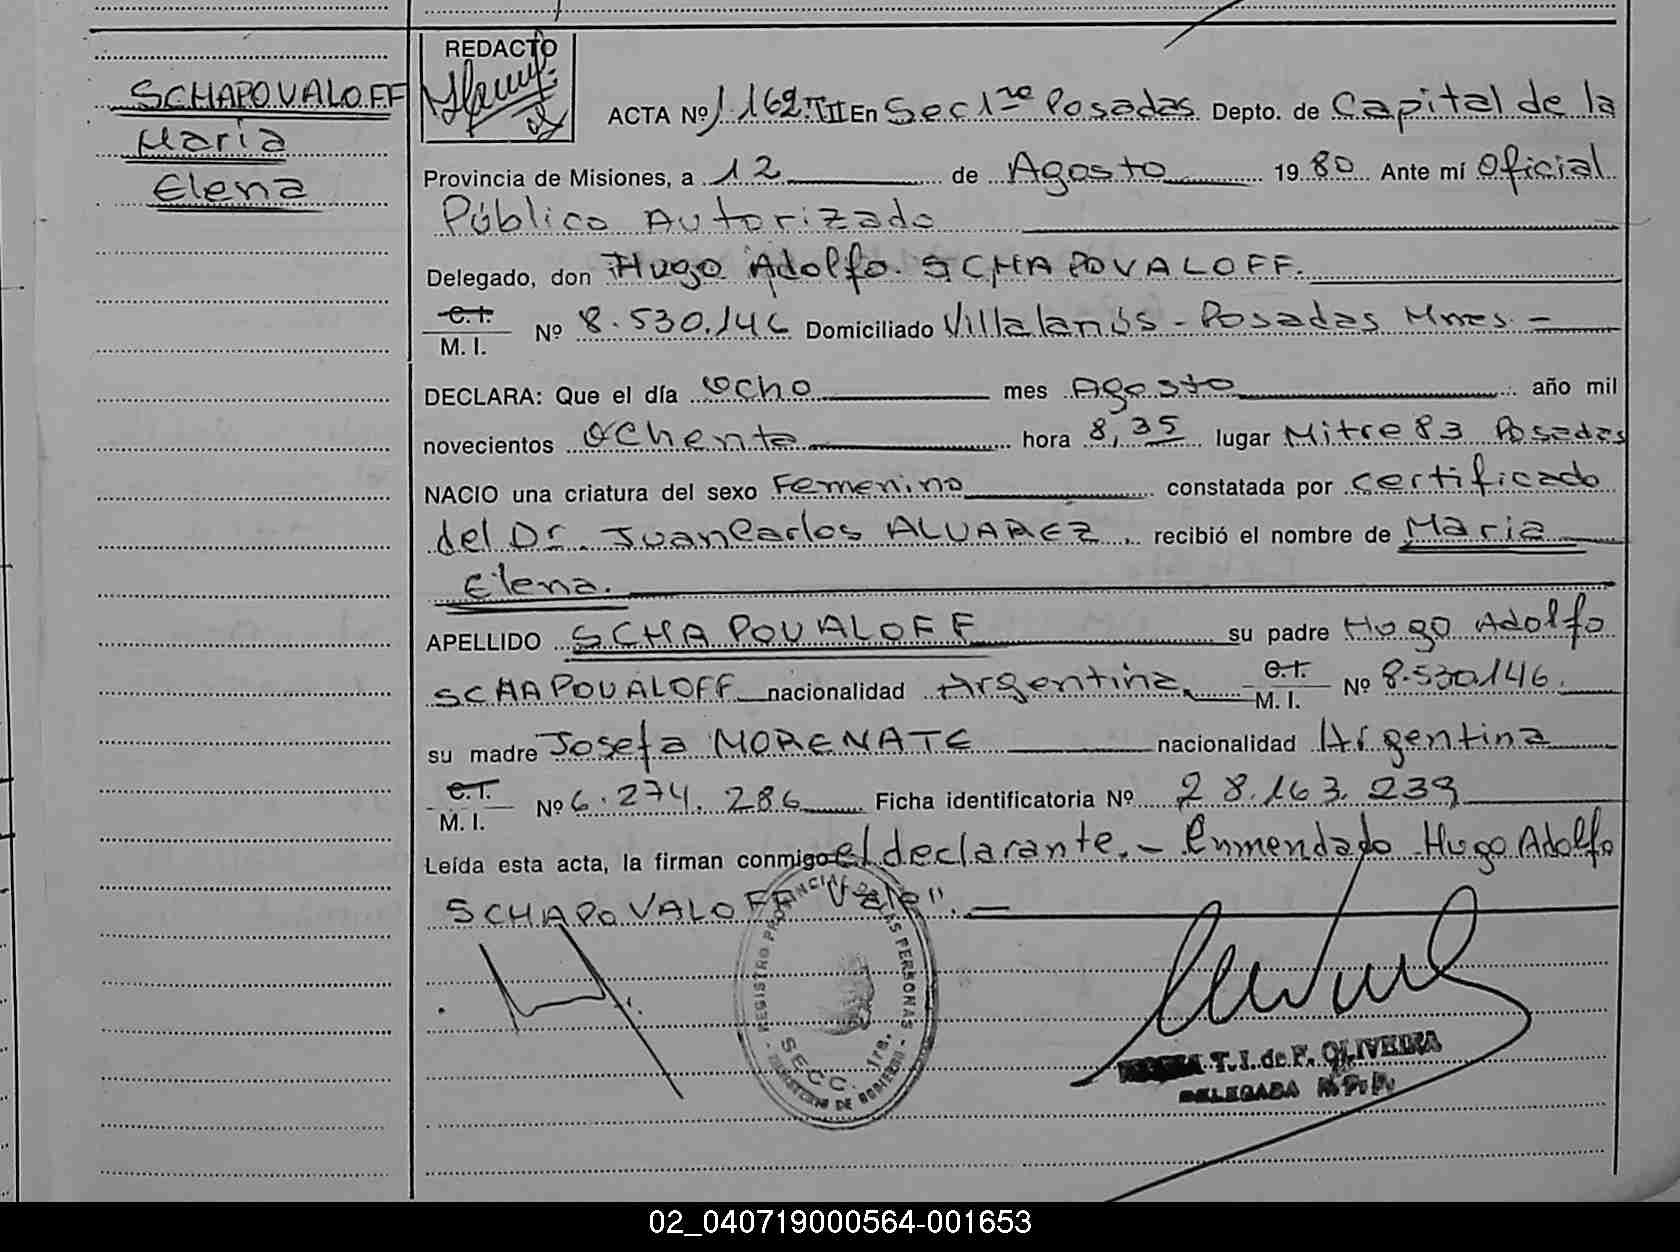 SCHAPOVALOFF
María
Elena
REDACTO
ACTA Nº 1.162.TII En Sec 1ra Posadas Depto. de Capital de la
Provincia de Misiones, a 12 de Agosto 1980 Ante mí Oficial
Público Autorizado
Delegado, don Hugo Adolfo SCHAPOVALOFF.
C.I.
M. I. Nº 8.530.146 Domiciliado Villalanús - Posadas Mnes. -
DECLARA: Que el día ocho mes Agosto año mil
novecientos ochenta hora 8,35 lugar Mitre 83 Posadas
NACIO una criatura del sexo Femenino constatada por certificado
del Dr. Juan Carlos ALVAREZ recibió el nombre de María
Elena.
APELLIDO SCHAPOVALOFF su padre Hugo Adolfo
SCHAPOVALOFF nacionalidad Argentina C.I. M. I. Nº 8.530.146.
su madre Josefa MORENATE nacionalidad Argentina
C.I.
M. I. Nº 6.274.286 Ficha identificatoria Nº 28.163.239
Leída esta acta, la firman conmigo el declarante. - Enmendado Hugo Adolfo
SCHAPOVALOFF "Vale". -
REGISTRO PROVINCIAL DE LAS PERSONAS
SECC. 1ra.
T. I. de F. OLIVEIRA
DELEGADA R.P.P.
02_040719000564-001653